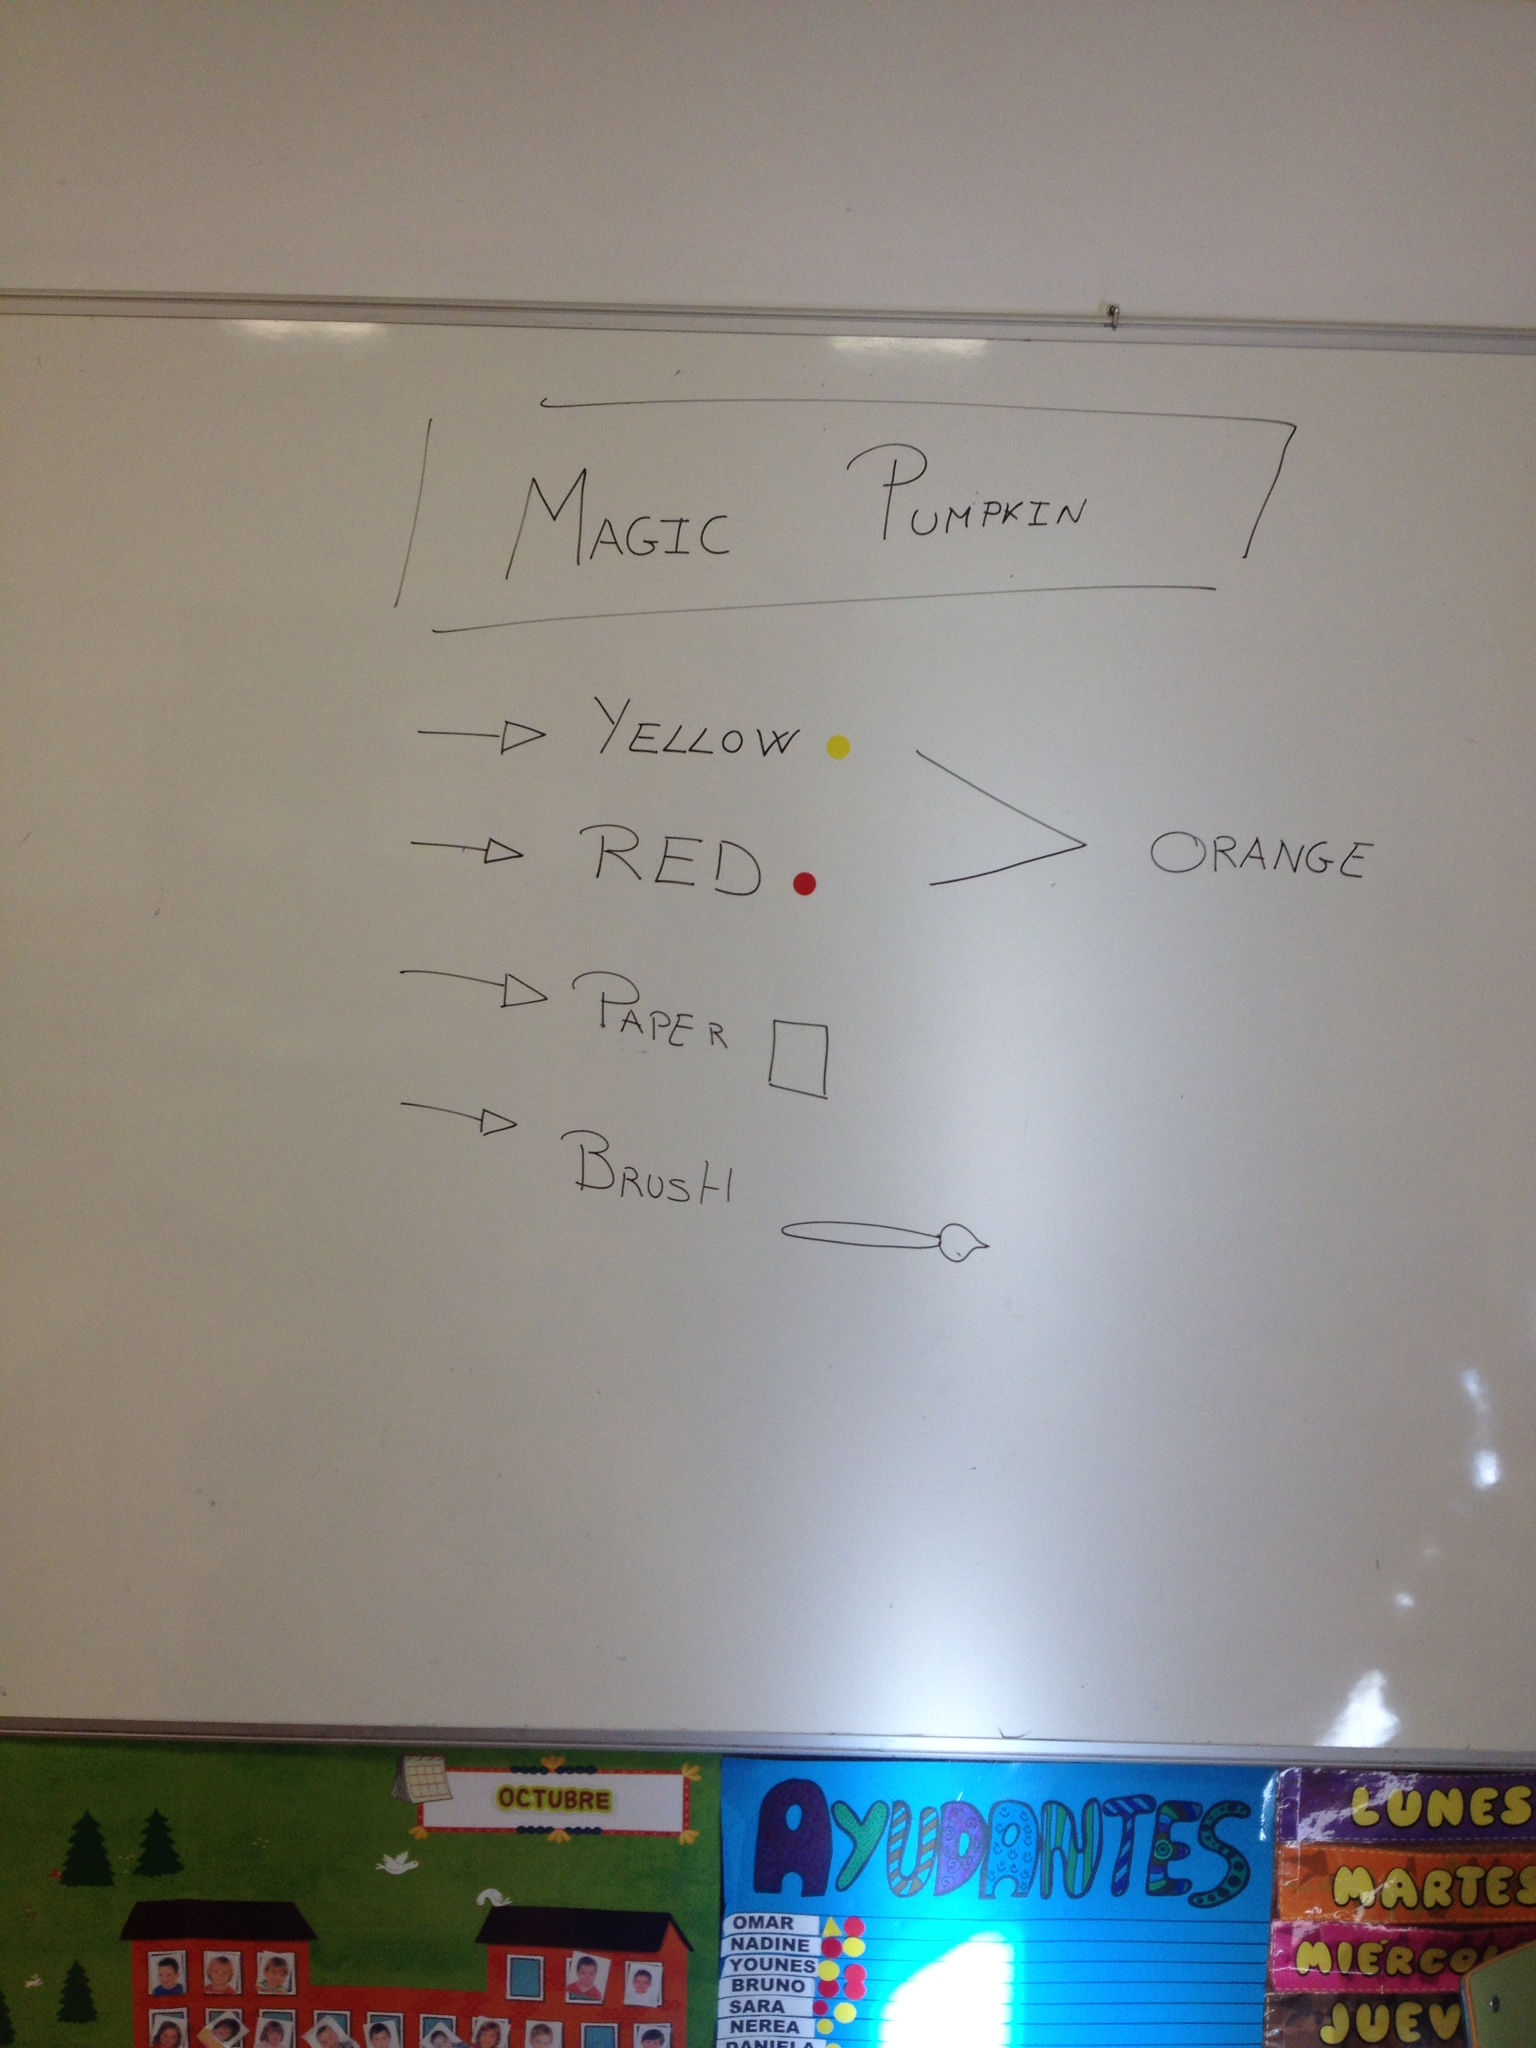 MAGIC PUMPKIN
YELLOW
RED
ORANGE
PAPER
BRUSH
OCTUBRE
AYUDANTES
OMAR
NADINE
YOUNES
BRUNO
SARA
NEREA
DANIELA
LUNES
MARTES
MIÉRCOL
JUEV